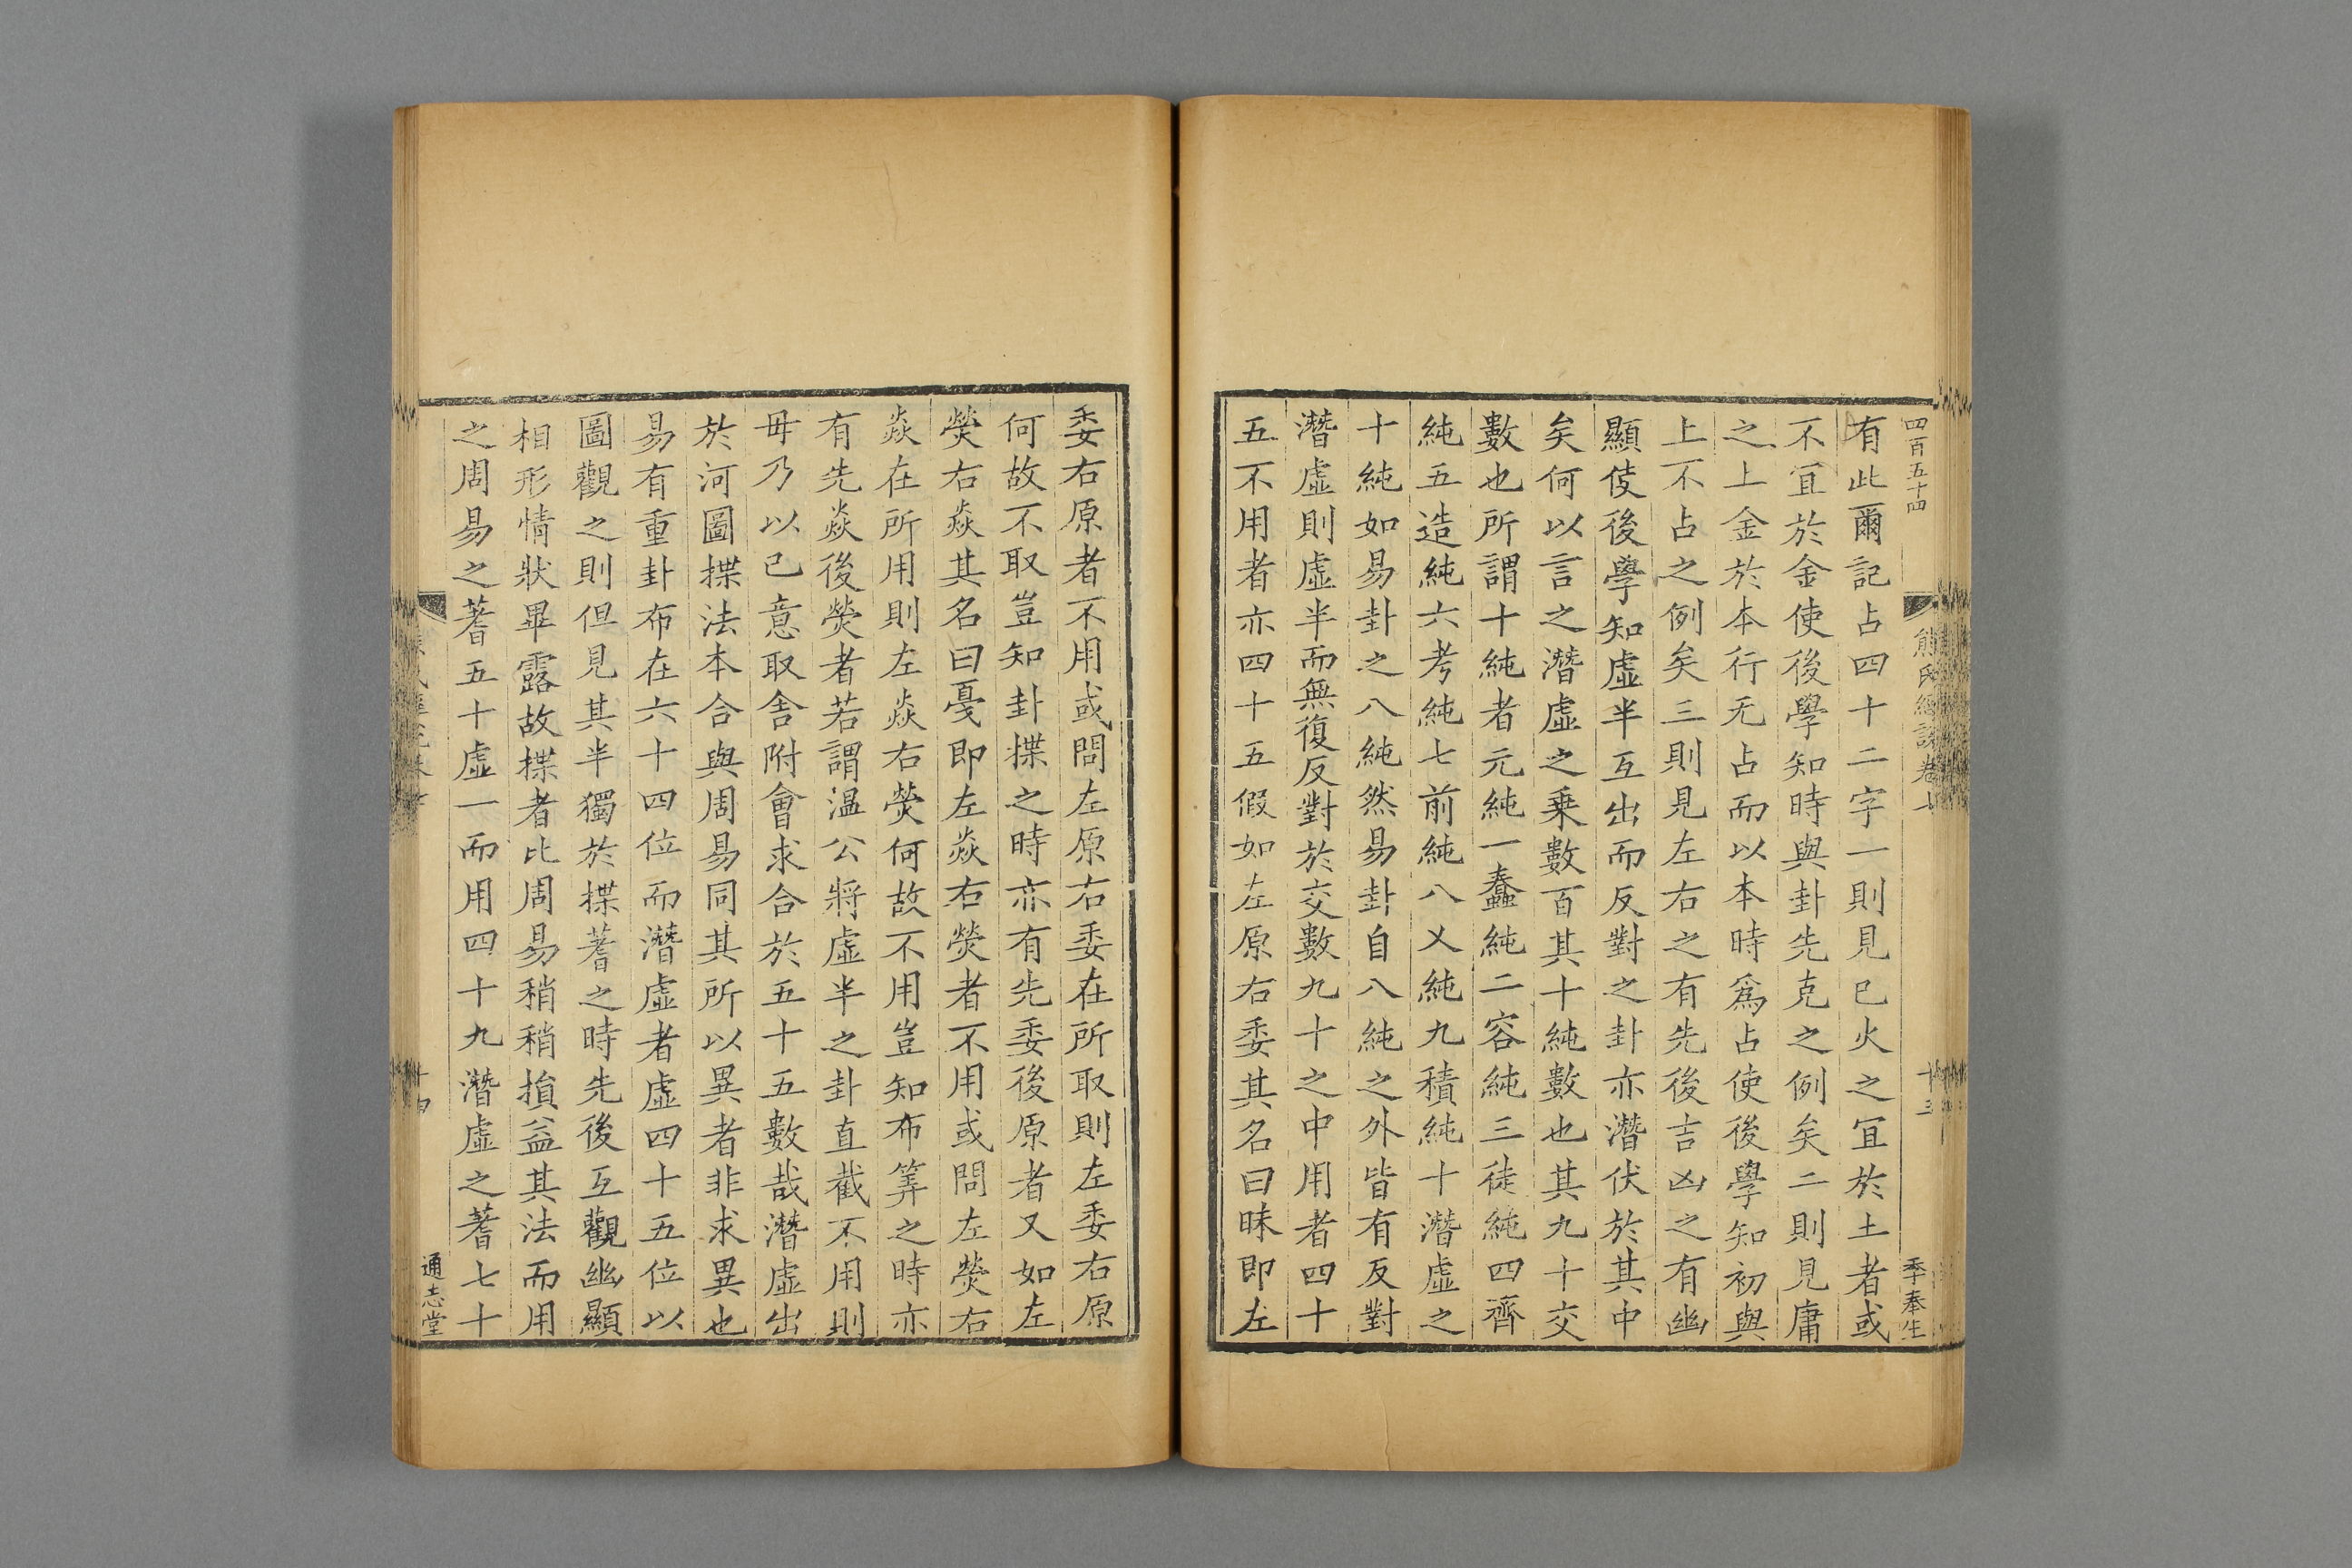 四百五十四
熊氏經說卷七
十三
季奉生
有此爾記占四十二字一則見巳火之冝於土者或
不冝於金使後學知時與卦先克之例矣二則見庸
之上金於本行无占而以本時爲占使後學知初與
上不占之例矣三則見左右之有先後吉凶之有幽
顯使後學知虛半互出而反對之卦亦潛伏於其中
矣何以言之潛虛之乗數百其十純數也其九十交
數也所謂十純者元純一蠢純二容純三徒純四齊
純五造純六考純七前純八乂純九積純十潛虛之
十純如易卦之八純然易卦自八純之外皆有反對
潛虛則虛半而無復反對於交數九十之中用者四十
五不用者亦四十五假如左原右委其名曰昧即左
委右原者不用或問左原右委在所取則左委右原
何故不取豈知卦揲之時亦有先委後原者又如左
熒右焱其名曰戞即左焱右熒者不用或問左熒右
焱在所用則左焱右熒何故不用豈知布筭之時亦
有先焱後熒者若謂温公將虛半之卦直截不用則
毋乃以已意取舎附會求合於五十五數哉潛虛出
於河圖揲法本合與周易同其所以異者非求異也
易有重卦布在六十四位而潛虛者虛四十五位以
圖觀之則但見其半獨於揲蓍之時先後互觀幽顯
相形情狀畢露故揲者比周易稍稍損益其法而用
之周易之蓍五十虛一而用四十九潛虛之蓍七十
通志堂